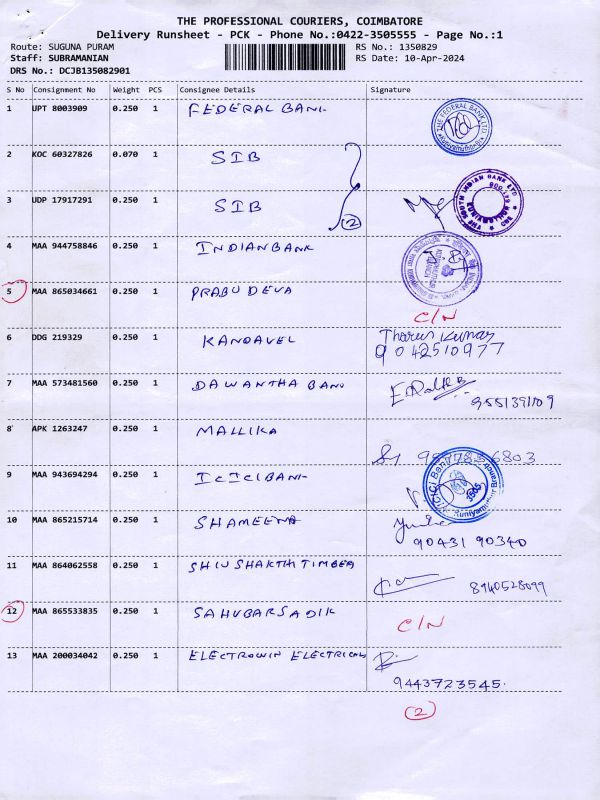 THE PROFESSIONAL COURIERS, COIMBATORE
Delivery Runsheet - PCK - Phone No.:0422-3505555 - Page No.:1
Route: SUGUNA PURAM RS No.: 1350829
Staff: SUBRAMANIAN RS Date: 10-Apr-2024
DRS No.: DCJB135082901
S No Consignment No Weight PCS Consignee Details Signature
1 UPT 8003909 0.250 1 FEDERAL BANK THE FEDERAL BANK LTD.
2 KOC 60327826 0.070 1 SIB
3 UDP 17917291 0.250 1 SIB (2) THE SOUTH INDIAN BANK LTD
4 MAA 944758846 0.250 1 INDIAN BANK
5 MAA 865034661 0.250 1 PRABU DEVA C/N
6 DDG 219329 0.250 1 KANDAVEL Tharun Kumar
9042510977
7 MAA 573481560 0.250 1 DAWANTHA 9551391109
8 APK 1263247 0.250 1 MALLIKA 6803
9 MAA 943694294 0.250 1 ICICI BANK ICICI Bank Kuniyamuthur Branch
10 MAA 865215714 0.250 1 SHAMEENA
90431 90340
11 MAA 864062558 0.250 1 SHIVSHAKTHI TIMBER 8940528099
12 MAA 865533835 0.250 1 SAHUBARSADIK C/N
13 MAA 200034042 0.250 1 ELECTROWIN ELECTRICALS
9443723545.
(2)